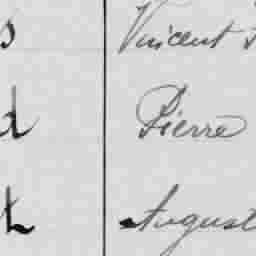 s Vincent
d Pierre
t August